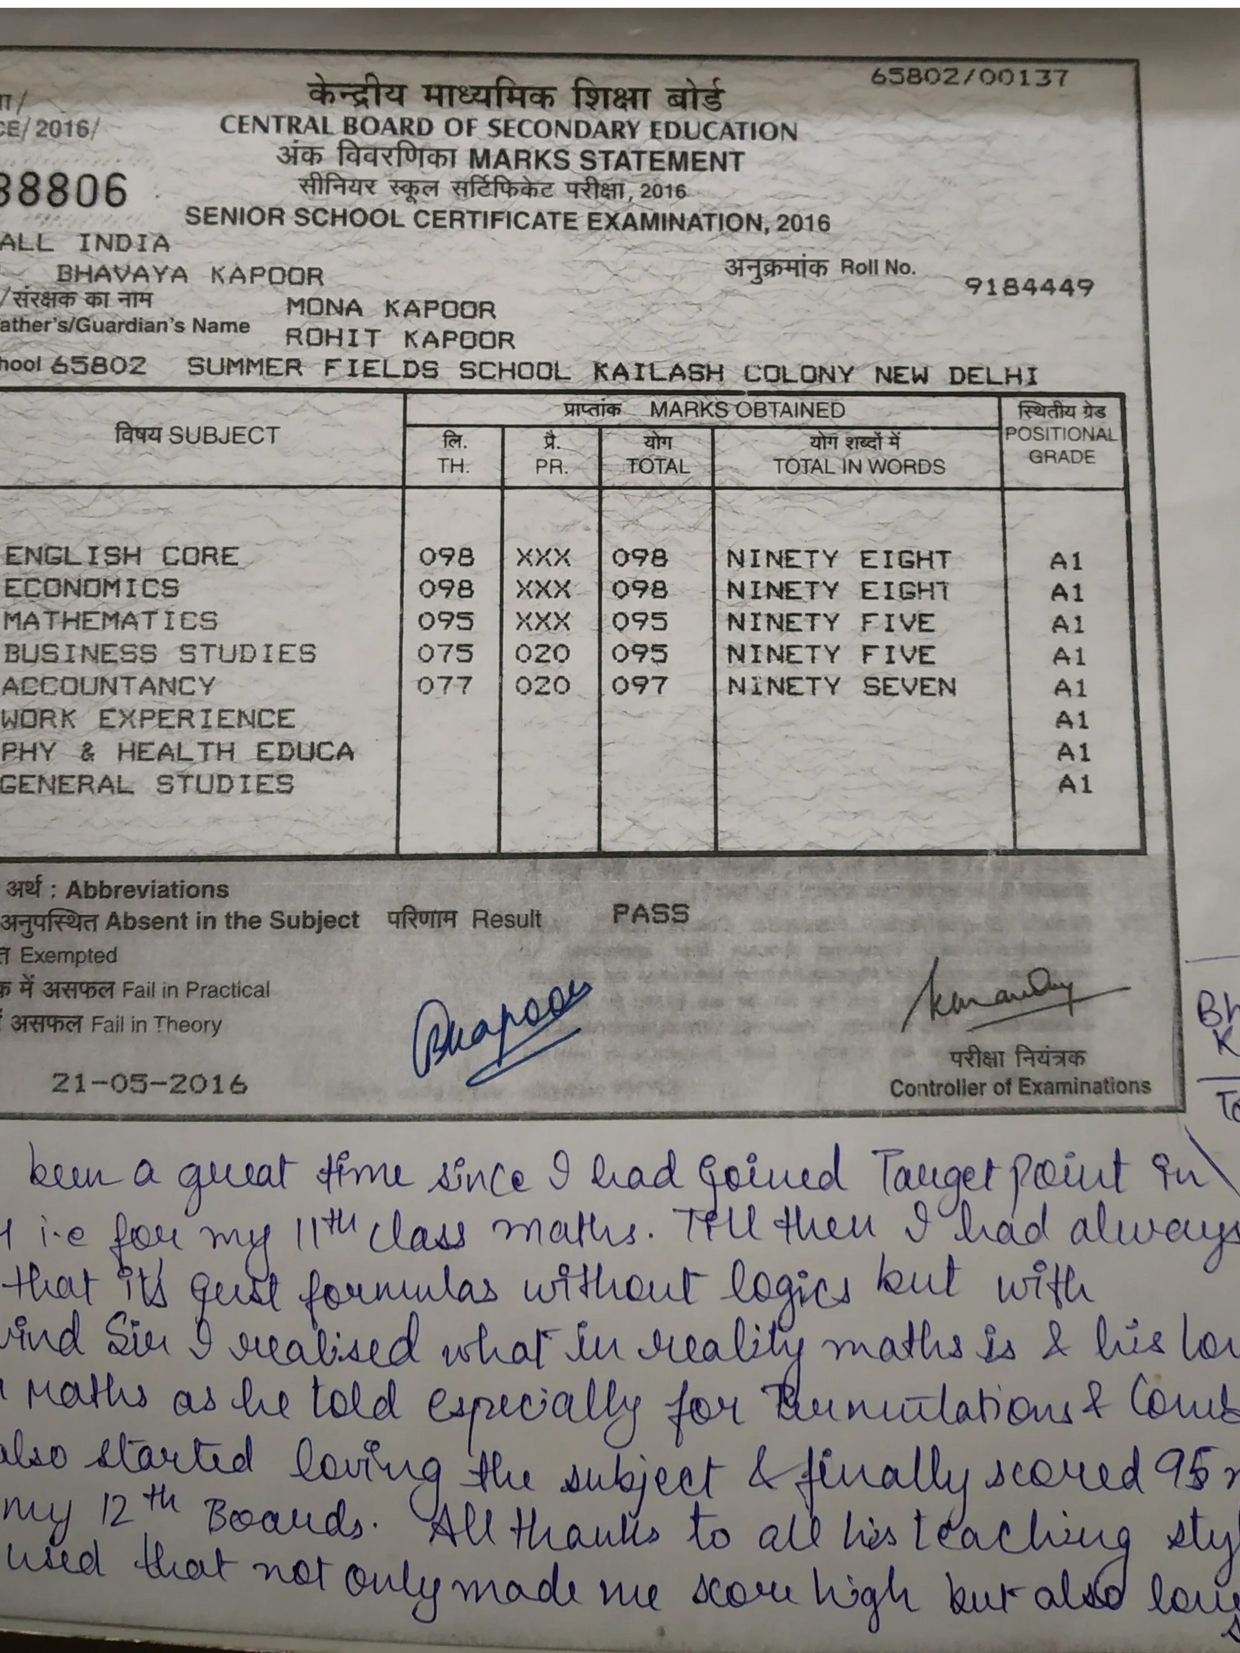 65802/00137
केन्द्रीय माध्यमिक शिक्षा बोर्ड
CE/2016/
CENTRAL BOARD OF SECONDARY EDUCATION
अंक विवरणिका MARKS STATEMENT
38806
सीनियर स्कूल सर्टिफिकेट परीक्षा, 2016
SENIOR SCHOOL CERTIFICATE EXAMINATION, 2016
ALL INDIA
BHAVAYA KAPOOR
अनुक्रमांक Roll No. 9184449
/संरक्षक का नाम MONA KAPOOR
ather's/Guardian's Name ROHIT KAPOOR
hool 65802 SUMMER FIELDS SCHOOL KAILASH COLONY NEW DELHI
विषय SUBJECT
प्राप्तांक MARKS OBTAINED
स्थितीय ग्रेड
POSITIONAL
GRADE
लि. प्रै. योग योग शब्दों में
TH. PR. TOTAL TOTAL IN WORDS
ENGLISH CORE 098 XXX 098 NINETY EIGHT A1
ECONOMICS 098 XXX 098 NINETY EIGHT A1
MATHEMATICS 095 XXX 095 NINETY FIVE A1
BUSINESS STUDIES 075 020 095 NINETY FIVE A1
ACCOUNTANCY 077 020 097 NINETY SEVEN A1
WORK EXPERIENCE A1
PHY & HEALTH EDUCA A1
GENERAL STUDIES A1
अर्थ : Abbreviations
अनुपस्थित Absent in the Subject परिणाम Result PASS
त Exempted
क में असफल Fail in Practical
में असफल Fail in Theory
Bkapoor
21-05-2016
परीक्षा नियंत्रक
Controller of Examinations
Bh
K
To
been a great time since I had joined Target point in
i.e for my 11th class maths. Till then I had always
that it's just formulas without logics but with
vind Sir I realised what in reality maths is & his lov
Maths as he told especially for Permutations & Comb
also started loving the subject & finally scored 95
my 12th Boards. All thanks to all his teaching sty
used that not only made me score high but also lov